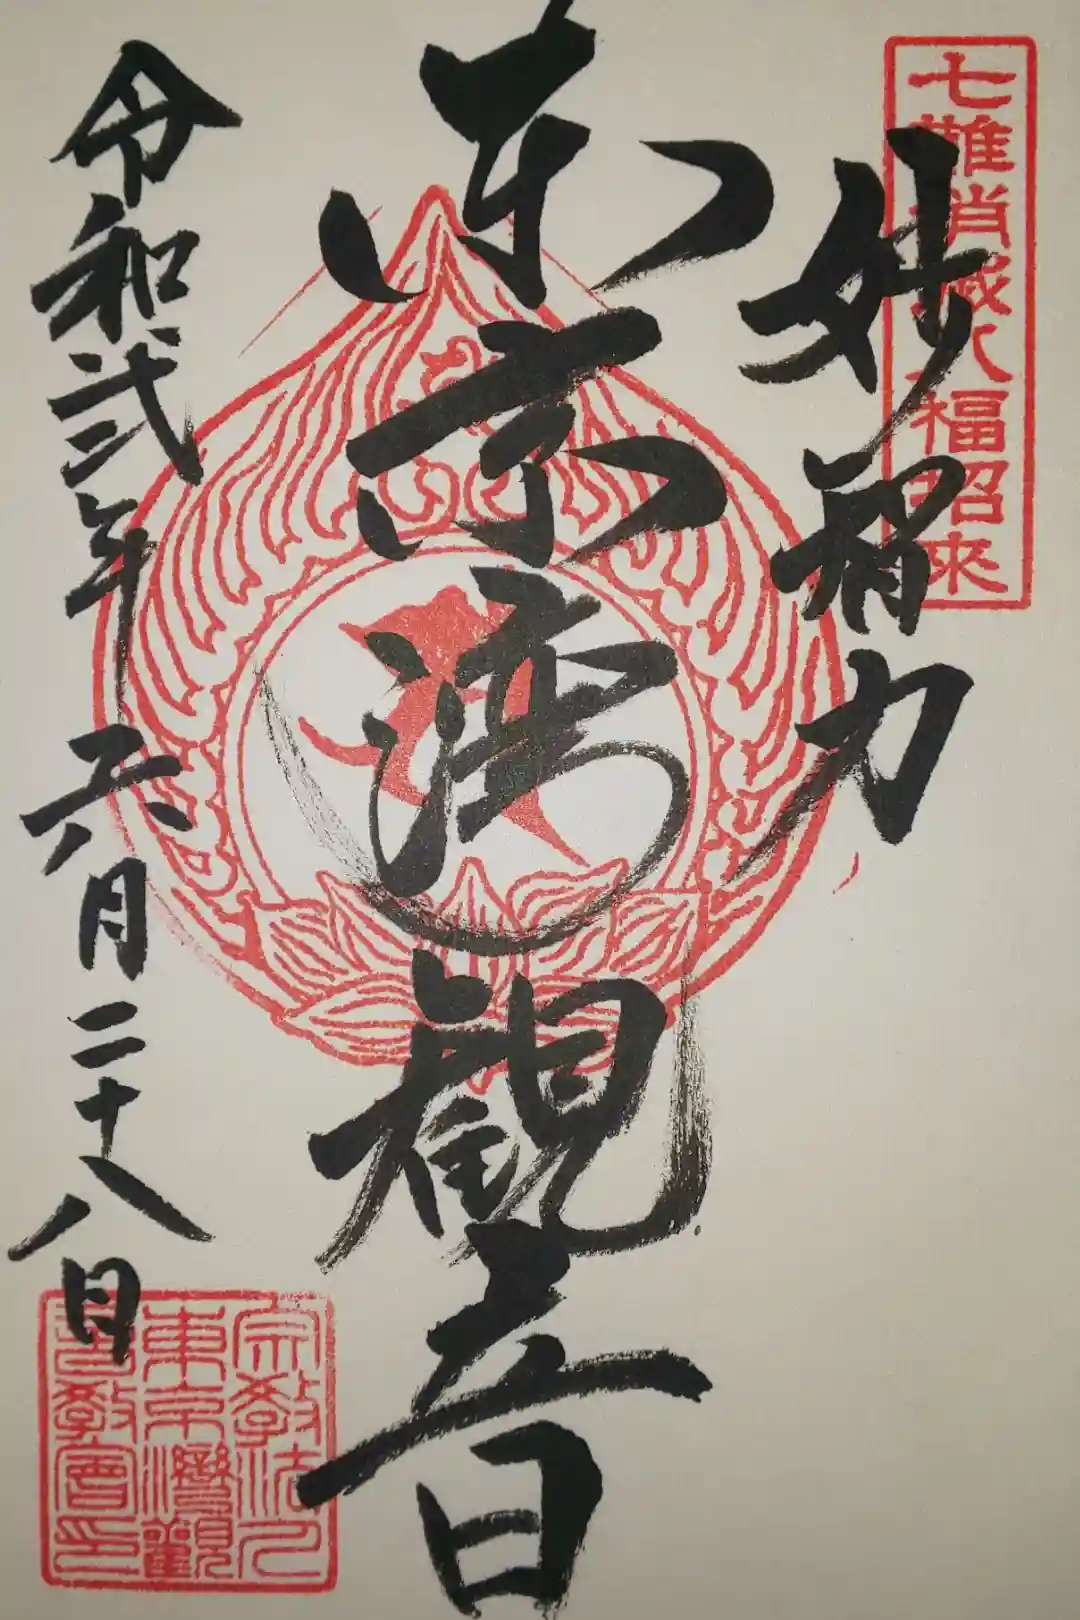 七難消滅八福招来
妙智力
東京湾観音
令和弐年六月二十八日
宗教法人
東京灣觀
音教會印